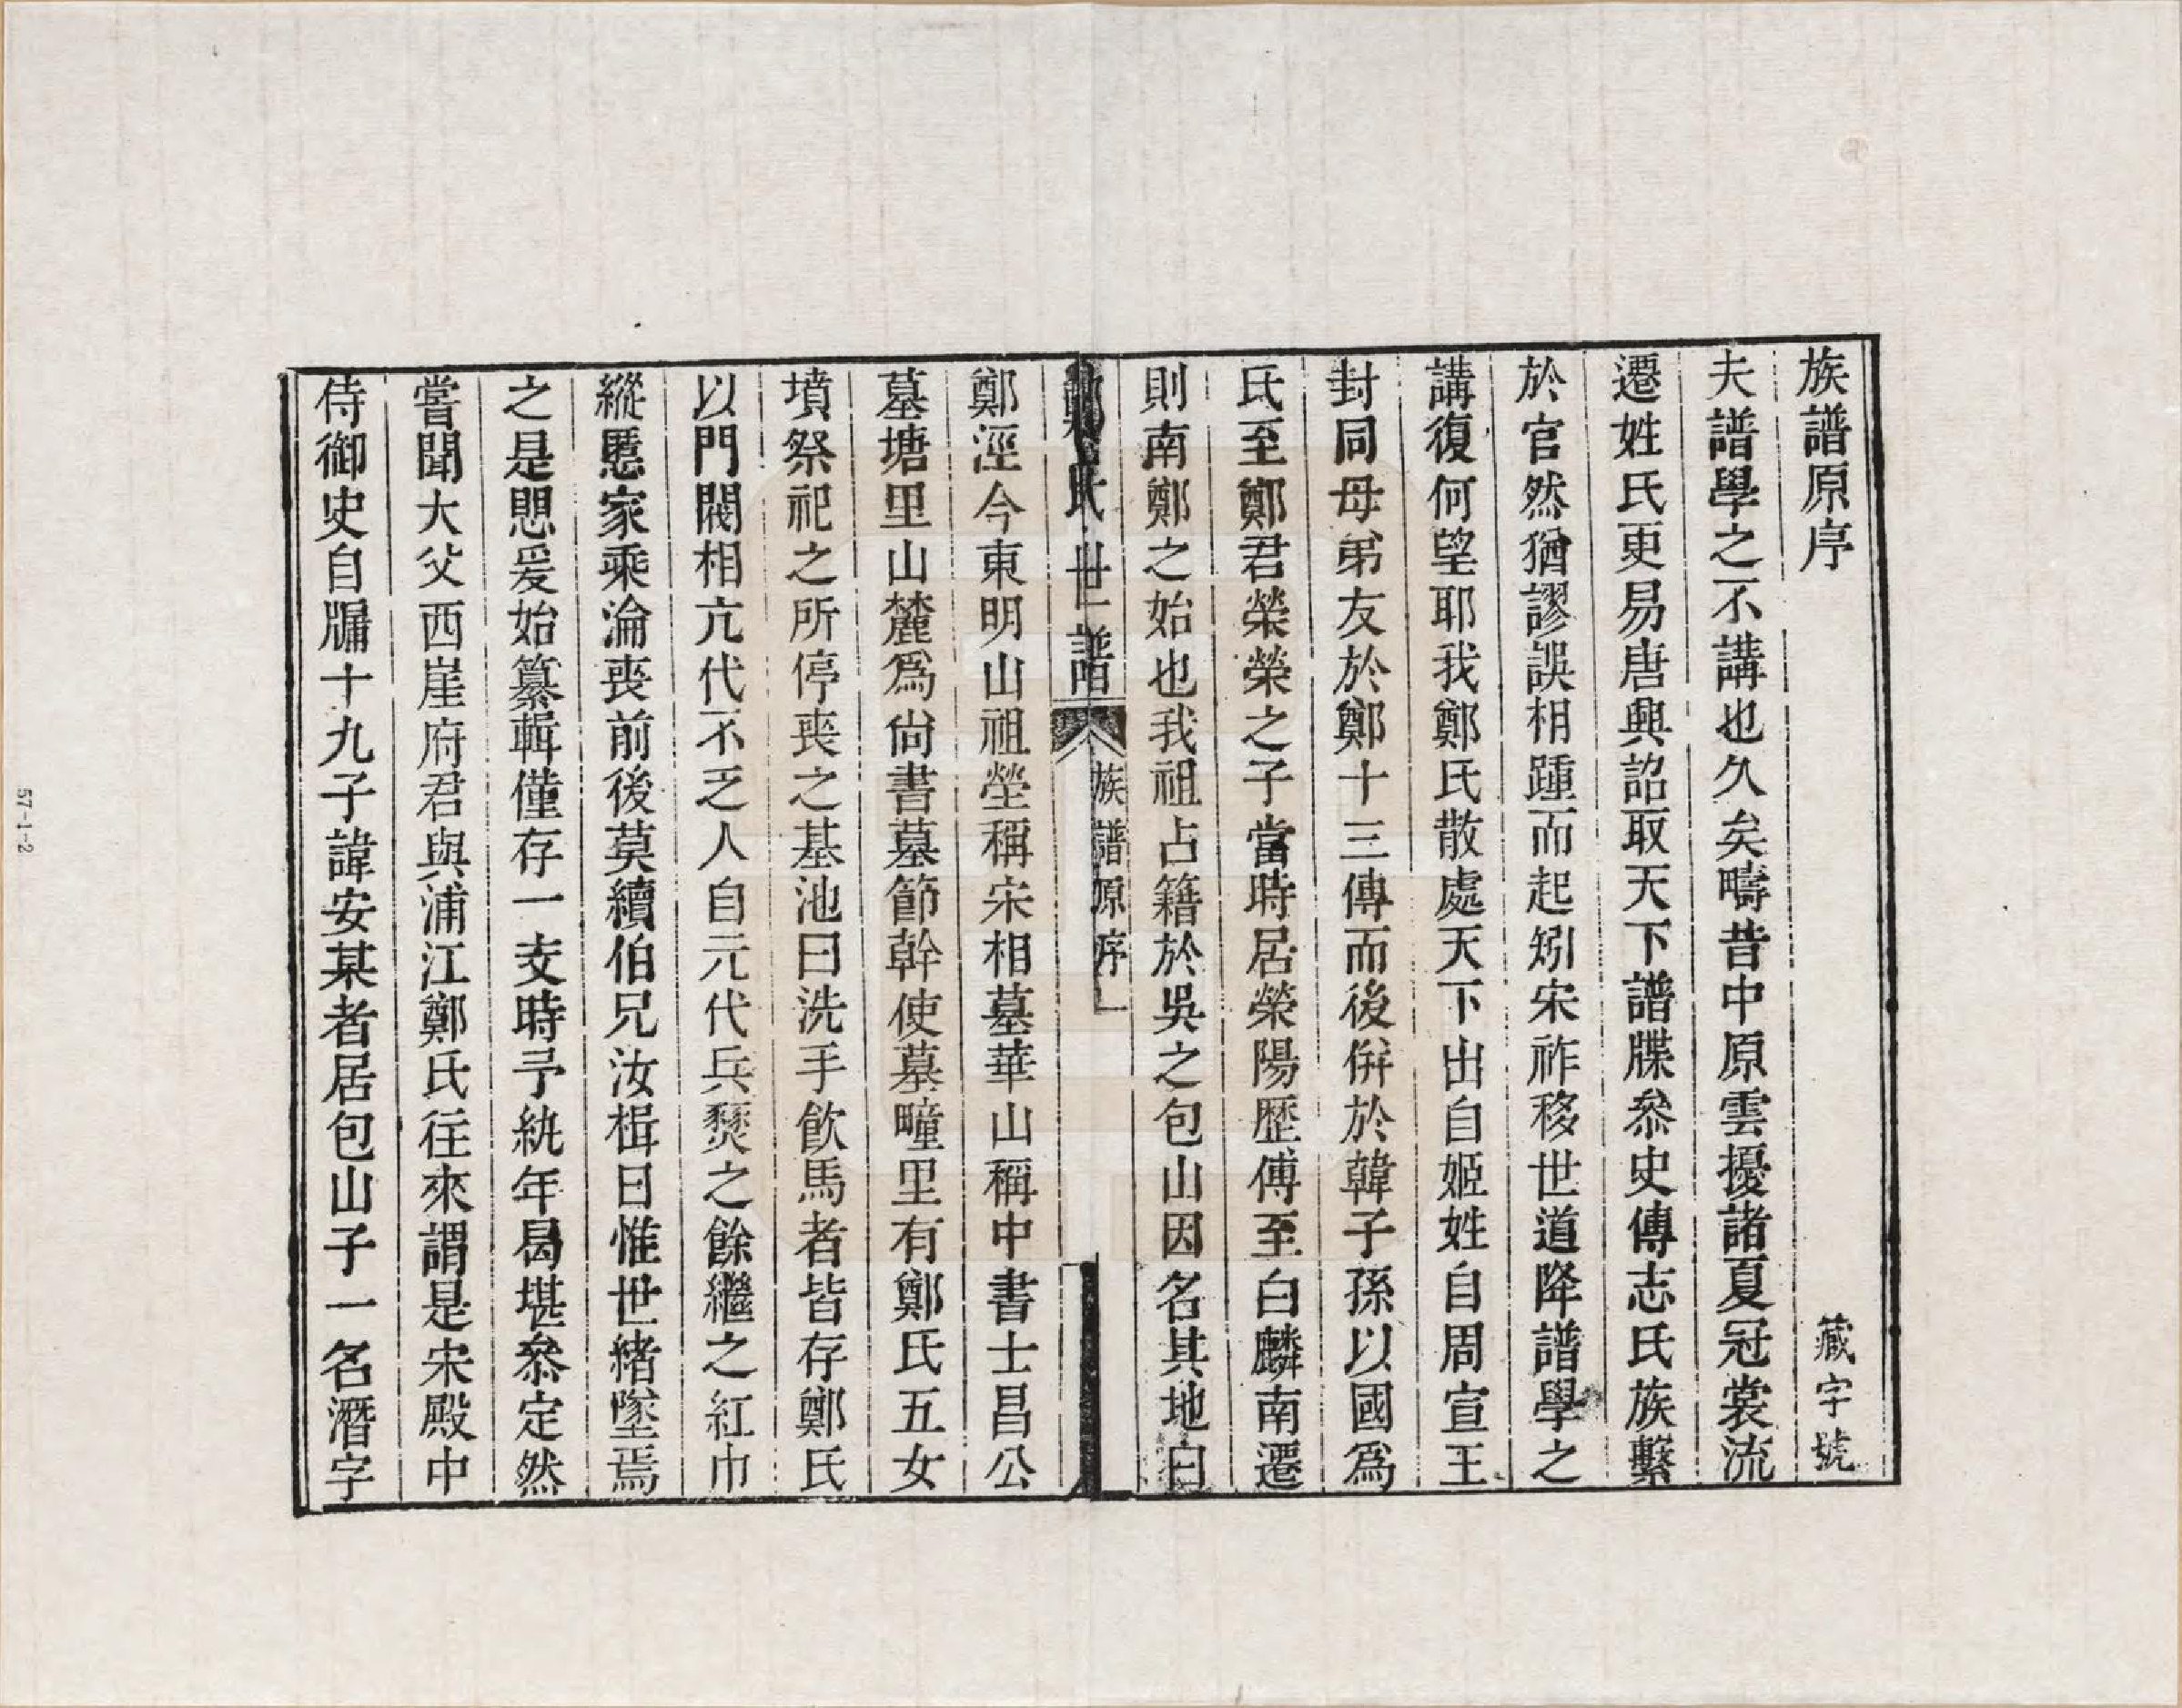 族譜原序
藏字號
夫譜學之不講也久矣疇昔中原雲擾諸夏冠裳流
遷姓氏更易唐興詔取天下譜牒叅史傳志氏族繫
於官然猶謬誤相踵而起矧宋祚移世道降譜學之
講復何望耶我鄭氏散處天下出自姬姓自周宣王
封同母弟友於鄭十三傳而後併於韓子孫以國爲
氏至鄭君榮榮之子當時居滎陽歷傳至白麟南遷
則南鄭之始也我祖占籍於吳之包山因名其地曰
鄭氏世譜
族譜原序
一
鄭涇今東明山祖塋稱宋相墓華山稱中書士昌公
墓塘里山麓爲尙書墓節幹使墓疃里有鄭氏五女
墳祭祀之所停喪之基池曰洗手飲馬者皆存鄭氏
以門閥相亢代不乏人自元代兵燹之餘繼之紅巾
縱慝家乘淪喪前後莫續伯兄汝楫曰惟世緒墜焉
之是思爰始纂輯僅存一支時予紈年曷堪叅定然
嘗聞大父西崖府君與浦江鄭氏往來謂是宋殿中
侍御史自牖十九子諱安某者居包山子一名潛字
57-1-2